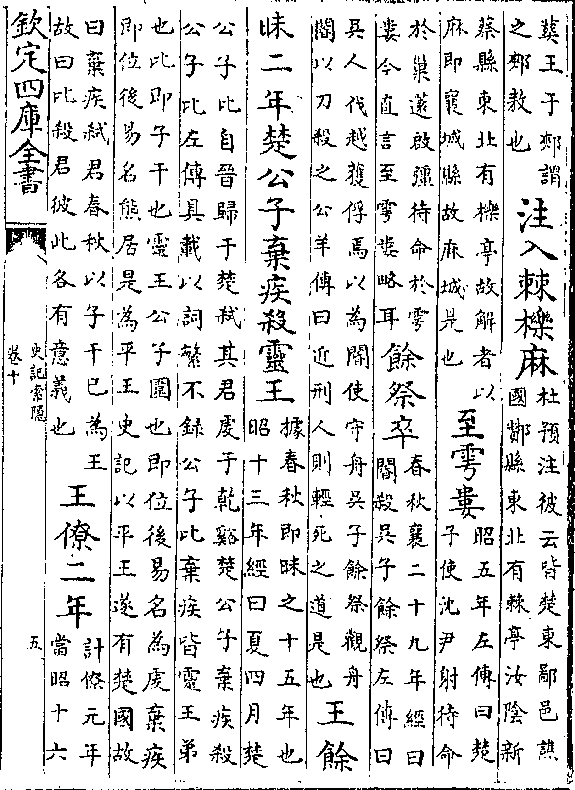 葬王于郟謂
之郟敖也
注入棘櫟麻
杜預注彼云皆楚東鄙邑譙
國酇縣東北有棘亭汝陰新
蔡縣東北有櫟亭故解者以
麻即襄城縣故麻城是也
至雩婁
昭五年左傳曰楚
子使沈尹射待命
於巢薳啟彊待命於雩
婁今直言至雩婁略耳
餘祭卒
春秋襄二十九年經曰
閽殺吳子餘祭左傳曰
吳人伐越獲俘焉以為閽使守舟吳子餘祭觀舟
閽以刀殺之公羊傳曰近刑人則輕死之道是也
王餘
昧二年楚公子棄疾殺靈王
據春秋即昧之十五年也
昭十三年經曰夏四月楚
公子比自晉歸于楚弒其君虔于乾谿楚公子棄疾殺
公子比左傳具載以詞繁不錄公子比棄疾皆靈王弟
也比即子干也靈王公子圍也即位後易名為虔棄疾
即位後易名熊居是為平王史記以平王遂有楚國故
曰棄疾弒君春秋以子干已為王
故曰比殺君彼此各有意義也
王僚二年
計僚元年
當昭十六
欽定四庫全書
史記索隱
卷十
五